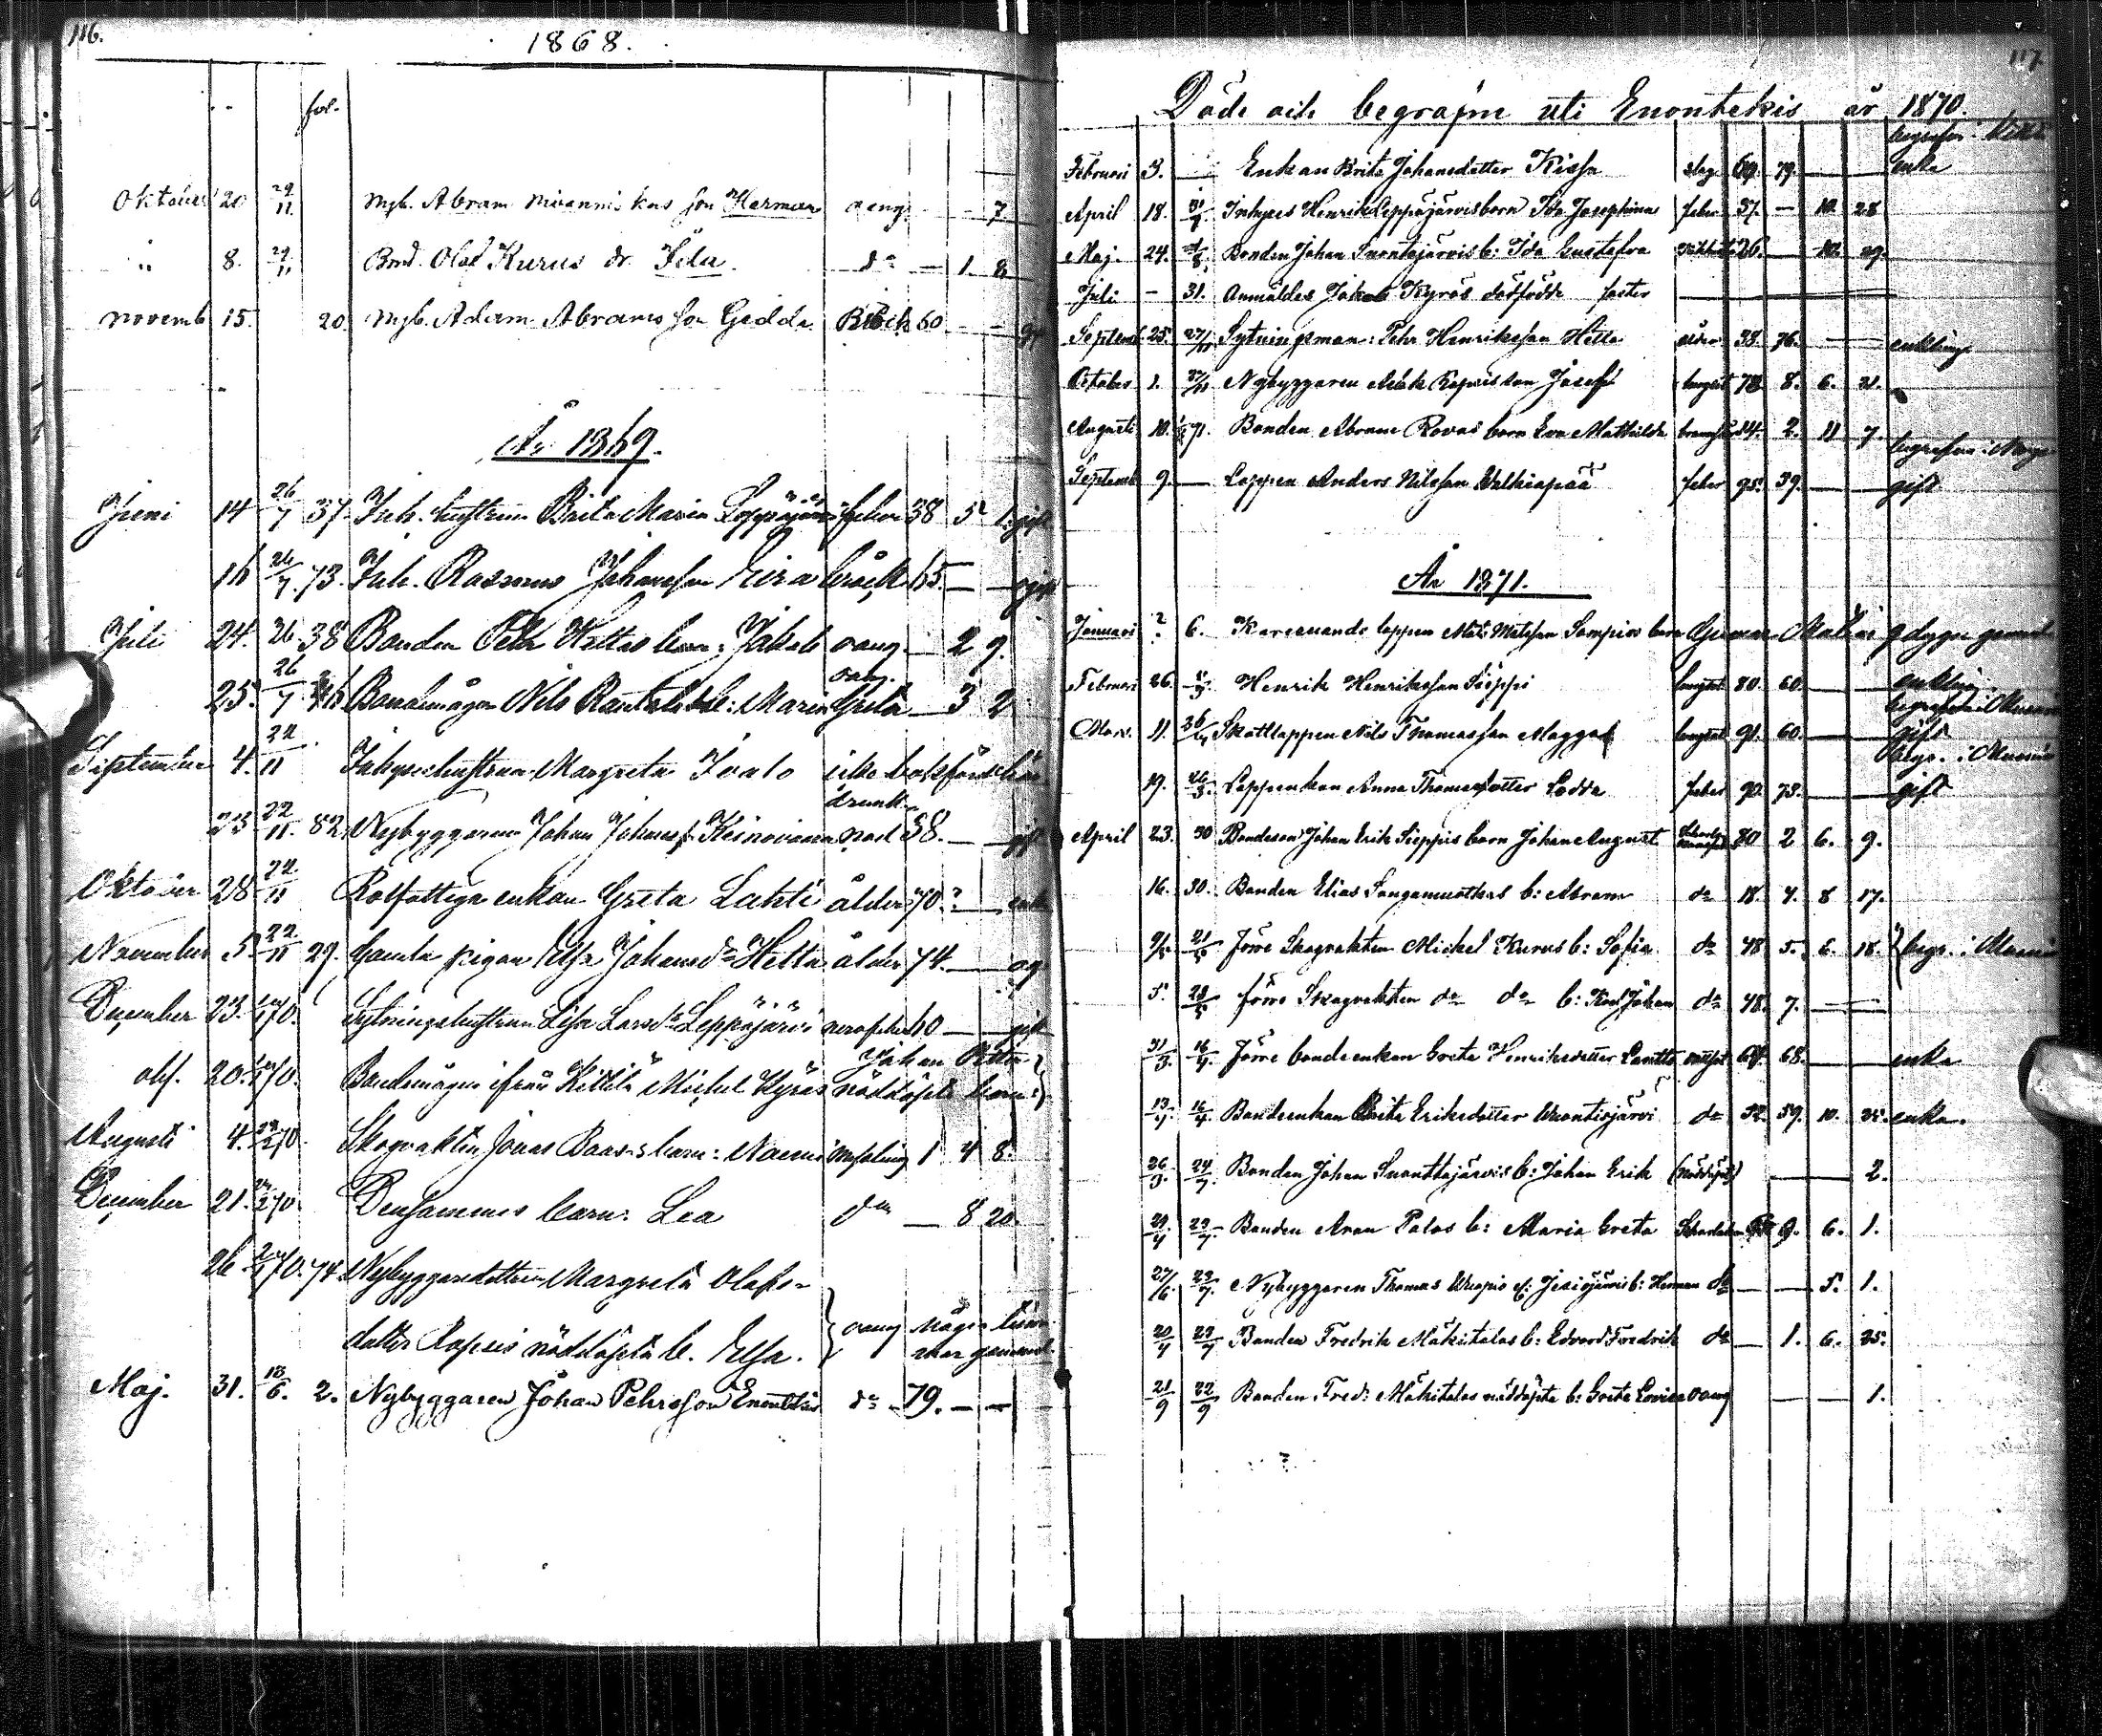 116.
1868.
fol.
Oktober 20 29/11. Nyb. Abram Nivanniskas son Herman oang. - - 7
" 8. 29/11 Bond. Olof Kurus dr. Ida do - 1. 8
Novemb 15. 20 Nyb. Adam Abrams son Gedda Bråck 60 - - gft
År 1869.
Juni 14 26/7 37. Inh. hustrun Brita Maria Leppäjärvi feber 38 5 1. gift
16 26/7. 73. Inh. Rasmus Johansson Eira bråck 65 — — gift
Juli 24. 26 38 Bonden Pehr Hettas barn: Jakob oang. — 2 9.
25. 26/7 Bondemågen Nils Rantalas b: Maria Greta oang. — 3 2
September 4. 22/11 Inhyseshustrun Margreta Ivalo icke bokförd här
23 22/11. 82. Nybyggaren Johan Johans. Keinovaara drunknad 38. — gift
Oktober 28 22/11 Rotfattiga enkan Greta Lahti ålder 70? — enka
November 5. 22/11 29. Gamla pigan Elsa Johansdr Hetta ålder 74. — og
December 23. 70. Sytningshustrun Lisa Larsdr Leppäjärvi 60 — gift
20. 70. Bondemågen ifrån Kittilä Michel Kyrös nöddöpta barn: Johan Petter
Augusti 4. 70 Skogvakten Jonas Baas's barn: Naemi messling 1 4 8.
December 21. 70 Densammes barn: Lea do — 8 20.
26. 70. 74 Nybyggaredottren Margreta Olafs-
dotter Kapsis nöddöpta b. Elsa. oang några timmar gammal
Maj. 31. 18/6. 2. Nybyggaren Johan Pehrsson Enontekis do 79. — —
117.
Döde och begrafne uti Enontekis år 1870.
Februari 3. — Enkan Brita Johansdotter Kissa slag 69. 79. — — begrafen i Kittilä enka
April 18. 31/7 Inhyses Henrik Leppäjärvis barn Ida Josephina feber 37. — 10 28
Maj. 24. 31/8. Bonden Johan Suontajärvis b: Ida Gustafva 26. — 10. 29.
Juli - 31. Anmäldes Jakob Kyrös dödfödde foster
Septemb 25. 27/11 Sytningsman: Pehr Henriksson Hetta ålder 38. 76. — enkling
October 1. 27/11 Nybyggaren Isak Kapsis son Josef 78 8. 6. 21.
Augusti 10. 71. Bonden Abram Rovas barn Eva Mathilda 14. 2. 11 7.
Septemb 9. — Lappen Anders Nilsson Walkiapää feber 95. 39. — begrafven i Norge gift
År 1871.
Januari ? 6. Karesuando lappen Mats Matsson Sompios barn Gunnar Mathias 9 dygn gammal
Februari 26. Henrik Henriksson Sieppi 80. 60. — — enkling
Mars. 11. 26/4 Skattlappen Nils Thomasson Magga 91. 60. — begrafven i Muonio gift
19. 26/3. Lappenkan Anna Thomasdotter Lodda feber 90. 73. — begr. i Muonio gift
April 23. 30 Bondeson Johan Erik Sieppis barn Johan August 80 2 6. 9.
16. 30. Banden Elias Songamuotkas b: Abram do 18. 4. 8 17.
9/5. 21/5 Förre Skogvakten Michel Kurus b: Sofia do 48 5. 6. 18. begr. i Muonio
5. 28/5. förre Skogvakten do do b: Karl Johan do 48. 7. —
31/3. 16/4. Förre bondenkan Greta Henriksdotter Lantto 64. 68. — enka
13/4. 16/4. Bondenkan Brita Eriksdotter Wuontisjärvi do 32. 59. 10. 25. enka.
26/3. 24/7. Bonden Johan Suonttajärvis b: Johan Erik (nöddöpt) — 2.
24/4 29/7. Bonden Aron Palos b: Maria Greta 9. 6. 1.
27/6. 29/7. Nybyggaren Thomas Wuopio ej: Jeisijärvis b: Herman do — — 5. 1.
20/4 29/7 Bonden Fredrik Mäkitalos b: Edvard Fredrik do — 1. 6. 25.
21/9 22/9 Bonden Fred: Mäkitalos nöddöpta b: Greta Lovisa oang — — 1.